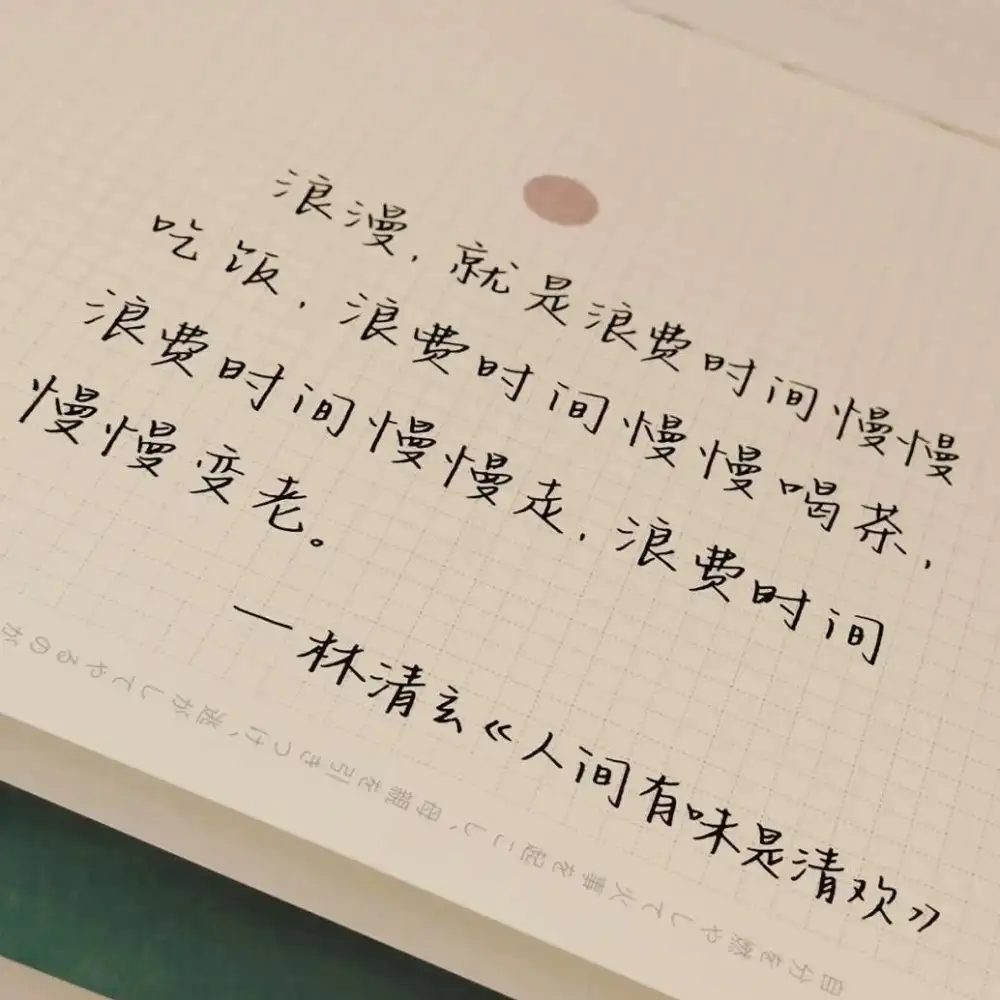 浪漫,就是浪费时间慢慢
吃饭,浪费时间慢慢喝茶,
浪费时间慢慢走,浪费时间
慢慢变老。
—林清玄《人间有味是清欢》
自分を燃やして火事を起こし、母親を引きつけ、逃がしてやるのが